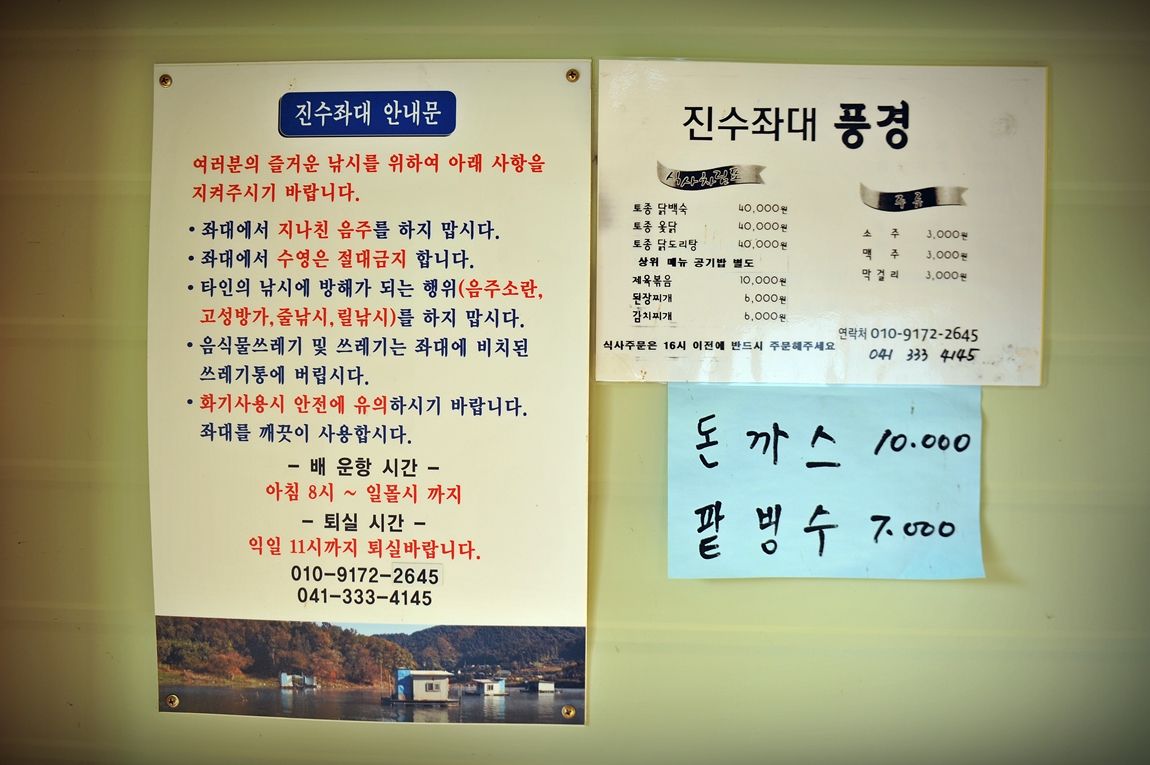 진수좌대 안내문
여러분의 즐거운 낚시를 위하여 아래 사항을
지켜주시기 바랍니다.
• 좌대에서 지나친 음주를 하지 맙시다.
• 좌대에서 수영은 절대금지 합니다.
• 타인의 낚시에 방해가 되는 행위(음주소란,
고성방가,줄낚시,릴낚시)를 하지 맙시다.
• 음식물쓰레기 및 쓰레기는 좌대에 비치된
쓰레기통에 버립시다.
• 화기사용시 안전에 유의하시기 바랍니다.
좌대를 깨끗이 사용합시다.
– 배 운항 시간 –
아침 8시 ~ 일몰시 까지
– 퇴실 시간 –
익일 11시까지 퇴실바랍니다.
010-9172-2645
041-333-4145
진수좌대 풍경
식사차림표
토종 닭백숙 40,000원
토종 옻닭 40,000원
토종 닭도리탕 40,000원
상위 메뉴 공기밥 별도
제육볶음 10,000원
된장찌개 6,000원
김치찌개 6,000원
주류
소 주 3,000원
맥 주 3,000원
막걸리 3,000원
식사주문은 16시 이전에 반드시 주문해주세요
연락처 010-9172-2645
041 333 4145
돈까스 10.000
팥빙수 7.000